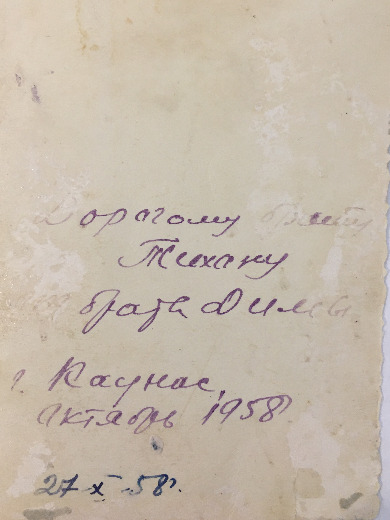 Дорогому брату
Тихану
брата Димы
г. Каунас,
октябрь 1958
27-X-58г.